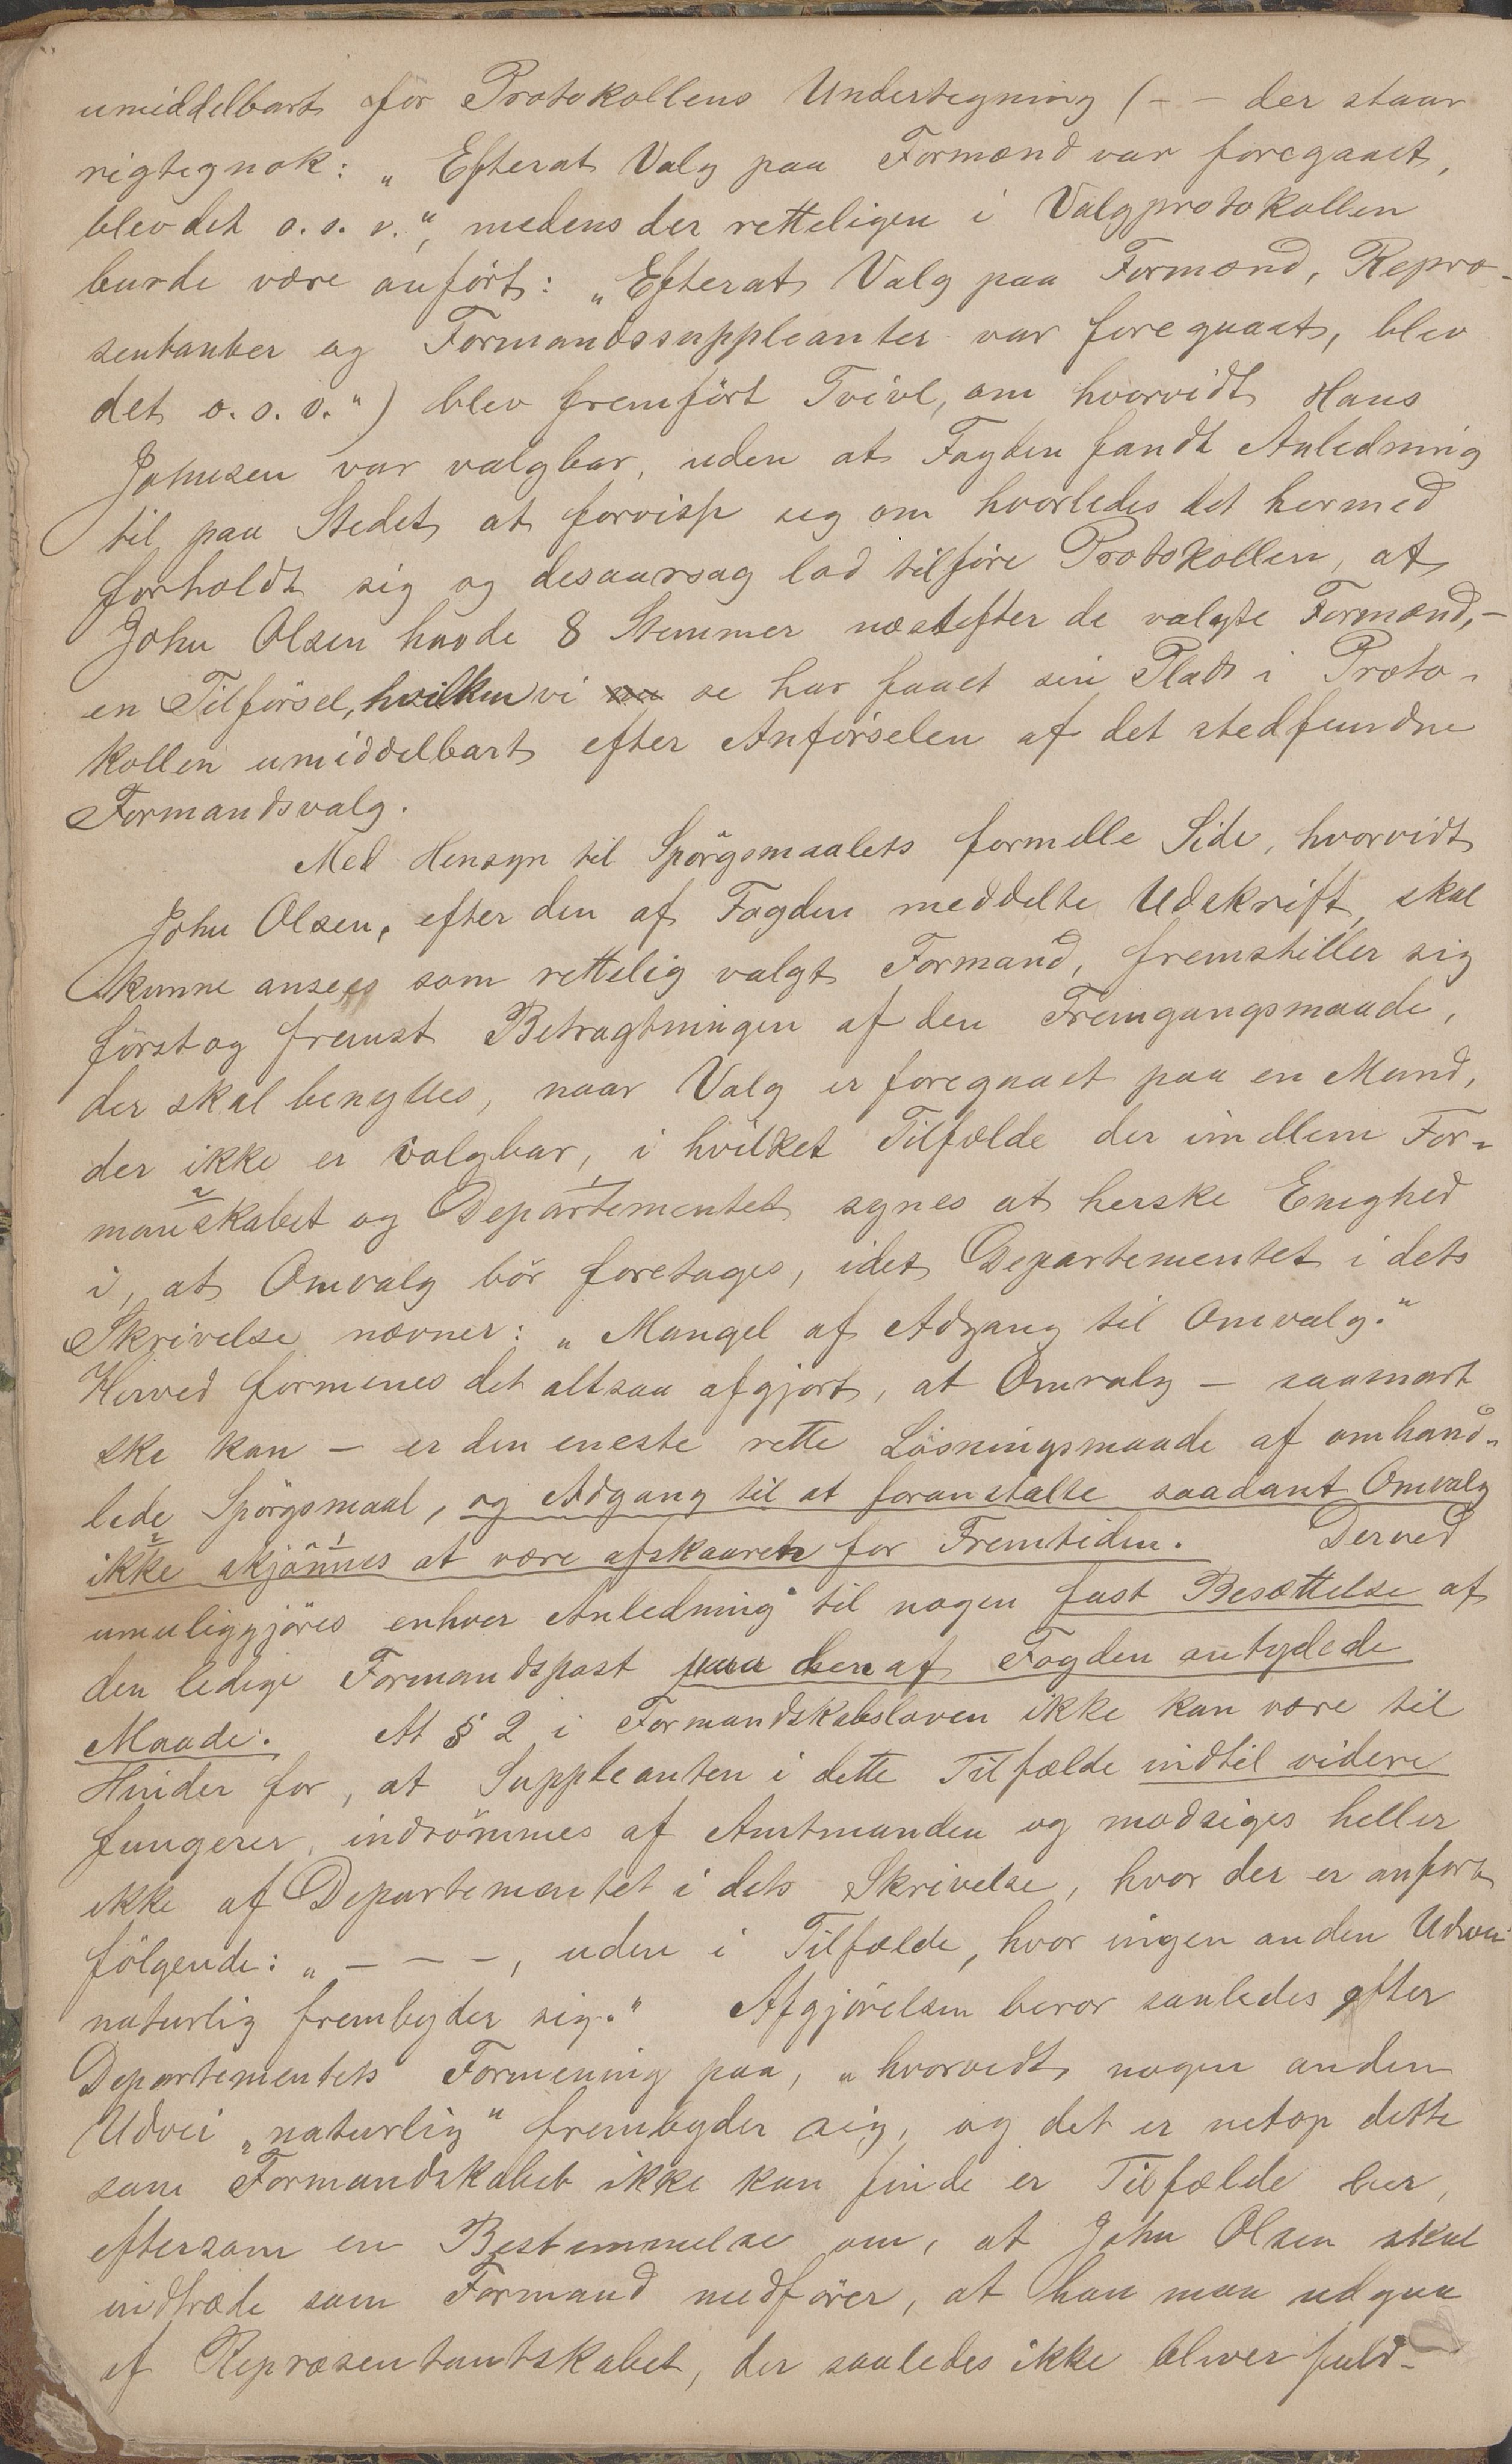 umiddelbart før Protokollens Undertegning (– – der staar
rigtignok: „Efterat Valg paa Formænd var foregaaet,
blev det o. s. v.“, medens der retteligen i Valgprotokollen
burde være anført: „Efterat Valg paa Formænd, Repræ-
sentanter og Formandssuppleanter var foregaaet, blev
det o. s. v.“) blev fremført Tvivl, om hvorvidt Hans
Johnsen var valgbar, uden at Fogden fandt Anledning
til paa Stedet at forvisse sig om hvorledes det hermed
forholdt sig og desaarsag lod tilføre Protokollen, at
John Olsen havde 8 Stemmer næstefter de valgte Formænd, –
en Tilførsel, hvilken vi se har faaet sin Plads i Proto-
kollen umiddelbart efter Anførselen af det stedfundne
Formandsvalg.
Med Hensyn til Spørgsmaalets formelle Side, hvorvidt
John Olsen, efter den af Fogden meddelte Udskrift, skal
kunne ansees som rettelig valgt Formand, fremstiller sig
først og fremst Betragtningen af den Fremgangsmaade,
der skal benyttes, naar Valg er foregaaet paa en Mand,
der ikke er valgbar, i hvilket Tilfælde der imellem For-
manskabet og Departementet synes at herske Enighed
i, at Omvalg bør foretages, idet Departementet i dets
Skrivelse nævner: „Mangel af Adgang til Omvalg.“
Herved formenes det altsaa afgjort, at Omvalg – saasnart
ske kan – er den eneste rette Løsningsmaade af omhand-
lede Spørgsmaal, og Adgang til at foranstalte saadant Omvalg
ikke skjønnes at være afskaaret for Fremtiden. Derved
umuliggjøres enhver Anledning til nogen fast Besættelse af
den ledige Formandspost paa den af Fogden antydede
Maade. At § 2 i Formandskabsloven ikke kan være til
Hinder for, at Suppleanten i dette Tilfælde indtil videre
fungerer, indrømmes af Amtmanden og modsiges heller
ikke af Departementet i dets Skrivelse, hvor der er anført
følgende: „– – –, uden i Tilfælde, hvor ingen anden Udvei
naturlig frembyder sig.“ Afgjørelsen beror saaledes efter
Departementets Formening paa, „hvorvidt nogen anden
Udvei „naturlig“ frembyder sig, og det er netop dette
som Formandskabet ikke kan finde er Tilfælde her,
eftersom en Bestemmelse om, at John Olsen skal
indtræde som Formand medfører, at han maa udgaa
af Repræsentantskabet, der saaledes ikke bliver fuld-